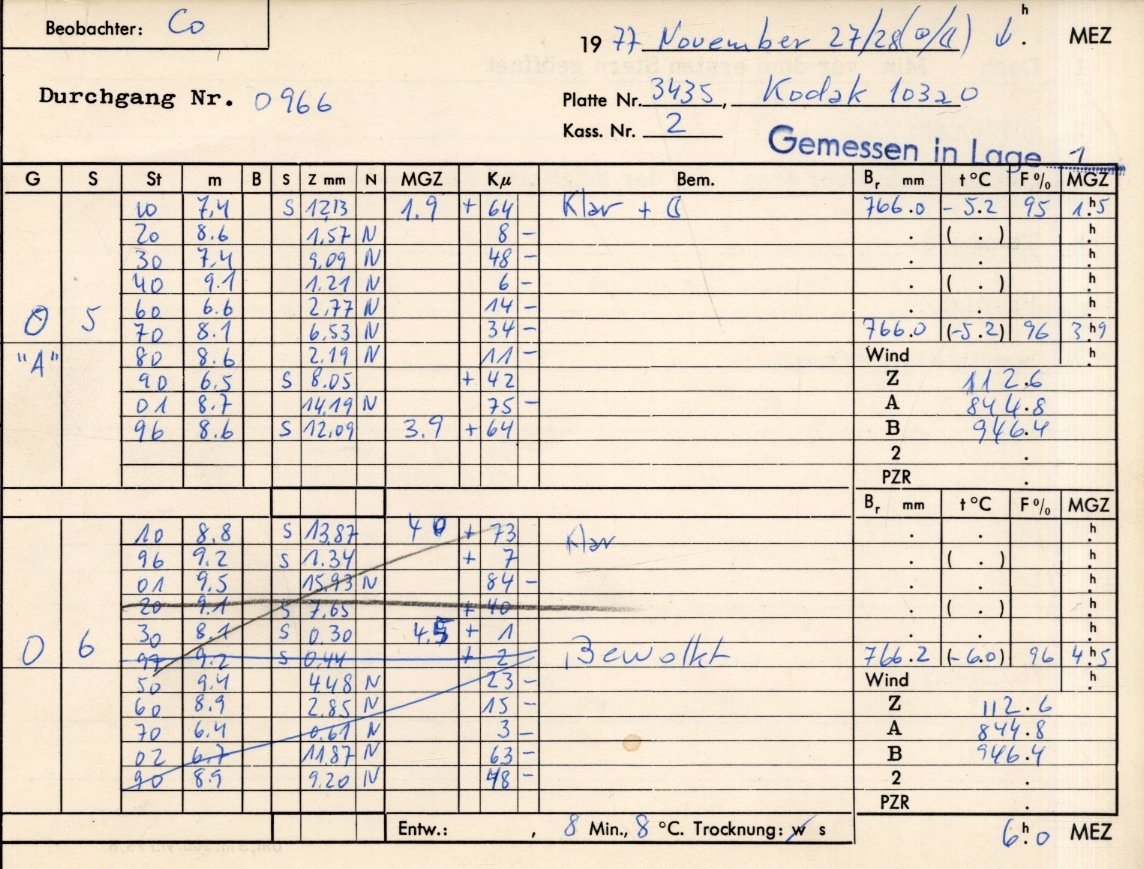 Beobachter: Co
19 77 November 27/28 (0/( ) h . MEZ
Durchgang Nr. 0966
Platte Nr. 3435, Kodak 10320
Kass. Nr. 2
Gemessen in Lage 1
G S St m B S Z mm N MGZ Kμ Bem. Br mm t °C F % MGZ
10 7,4 S 12,13 1.9 + 64 Klar + ( 766.0 - 5.2 95 1.h5
20 8.6 1,57 N 8 - . ( . ) .h
30 7,4 9,09 N 48 - . . .h
40 9.1 1.21 N 6 - . ( . ) .h
60 6.6 2,77 N 14 - . . .h
0 5 70 8.1 6,53 N 34 - 766.0 (-5.2) 96 3.h9
"A" 80 8.6 2.19 N 11 - Wind .h
90 6,5 S 8.05 + 42 Z 112.6
01 8.7 14,19 N 75 - A 844.8
96 8.6 S 12,09 3.9 + 64 B 946.4
2 .
PZR .
Br mm t °C F % MGZ
10 8.8 S 13,87 4 0 + 73 Klar . . .h
96 9.2 S 1.34 + 7 . ( . ) .h
01 9,5 15,93 N 84 - . . .h
20 9.1 S 7,65 + 40 . ( . ) .h
30 8.1 S 0,30 4.5 + 1 . . .h
0 6 99 9.2 S 0,44 + 2 Bewolkt 766.2 (- 6.0) 96 4.h5
50 9.4 4.48 N 23 - Wind .h
60 8.9 2.85 N 15 - Z 112.6
70 6.4 0,61 N 3 - A 844.8
02 6.7 11,87 N 63 - B 946.4
90 8.9 9.20 N 48 - 2 .
PZR .
Entw.: , 8 Min., 8 °C. Trocknung: w s 6.h0 MEZ